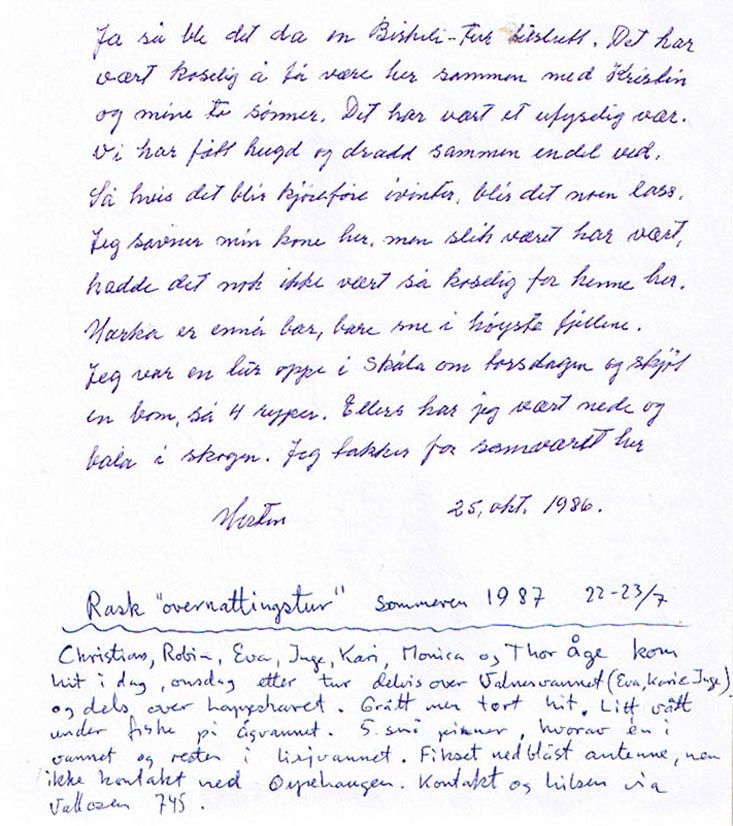 Ja så ble det da en Bisheli-Tur beslutt. Det har
vært koselig å få være her sammen med Kristin
og mine to sønner. Det har vært et ufyselig vær.
Vi har fått hugd og dradd sammen endel ved.
Så hvis det blir kjøreføre ivinter, blir det noen lass.
Jeg savner min kone her, men slik været har vært,
hadde det nok ikke vært så koselig for henne her.
Marka er ennå bar, bare sne i høyste fjellene.
Jeg var en tur oppe i Skåla om torsdagen og skjøt
en bom, så 4 ryper. Ellers har jeg vært nede og
i skogen. Jeg takker for samværet her
25, okt. 1986.
Rask "overnattingstur" Sommeren 1987 22-23/7
Christians, Robin, Eva, Inge, Kari, Monica og Thor Åge kom
hit i dag, onsdag etter tur delvis over Valnesvannet (Eva, Kari Inge)
og dels over . Grått men tørt hit. Litt vått
under fiske på Ågvannet. 5 små pinner, hvorav én i
vannet og resten i . Fikset nedblåst antenne, men
ikke kontakt med Oypehaugen. Kontakt og hilsen via
745.